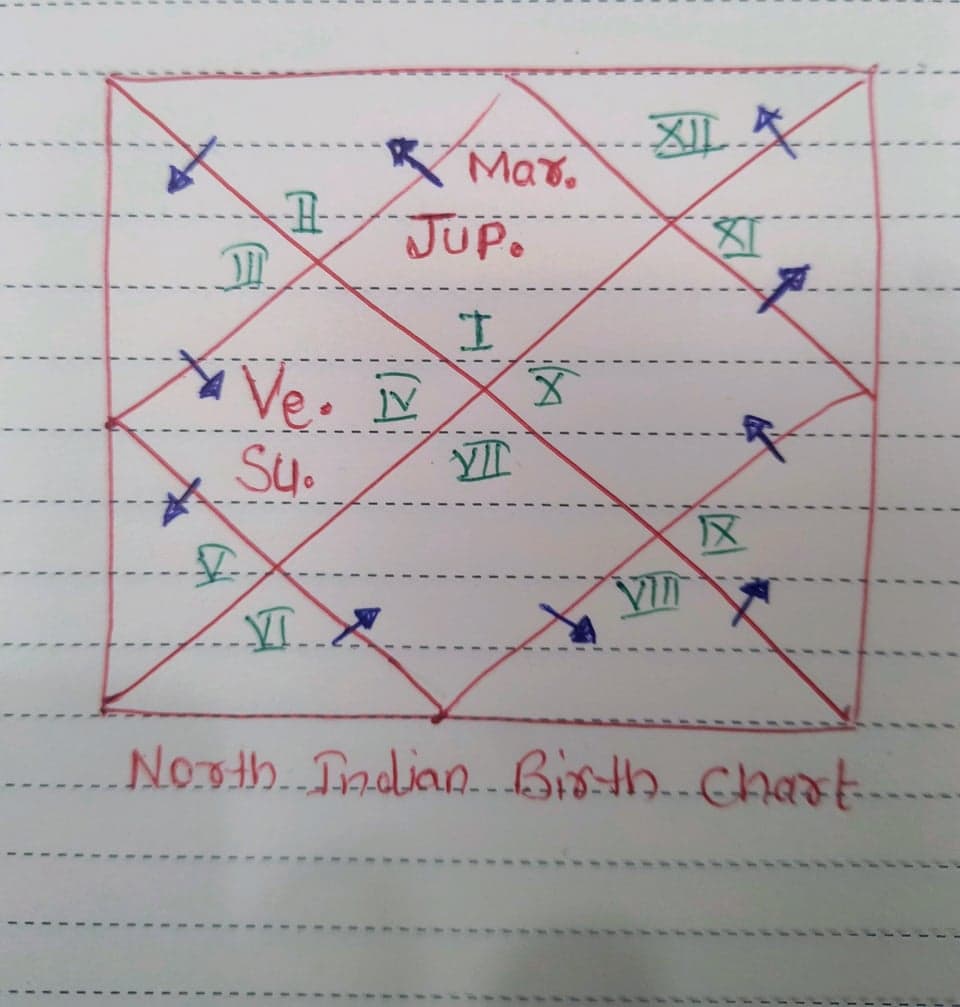 XII
Mar.
II
Jup.
XI
III
I
Ve.
IV
X
Su.
VII
V
IX
VIII
VI
North Indian Birth Chart